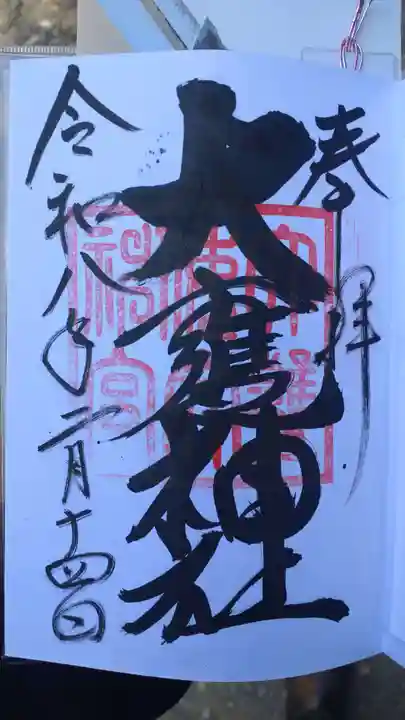 奉拝
大甕神社
令和八年二月十四日